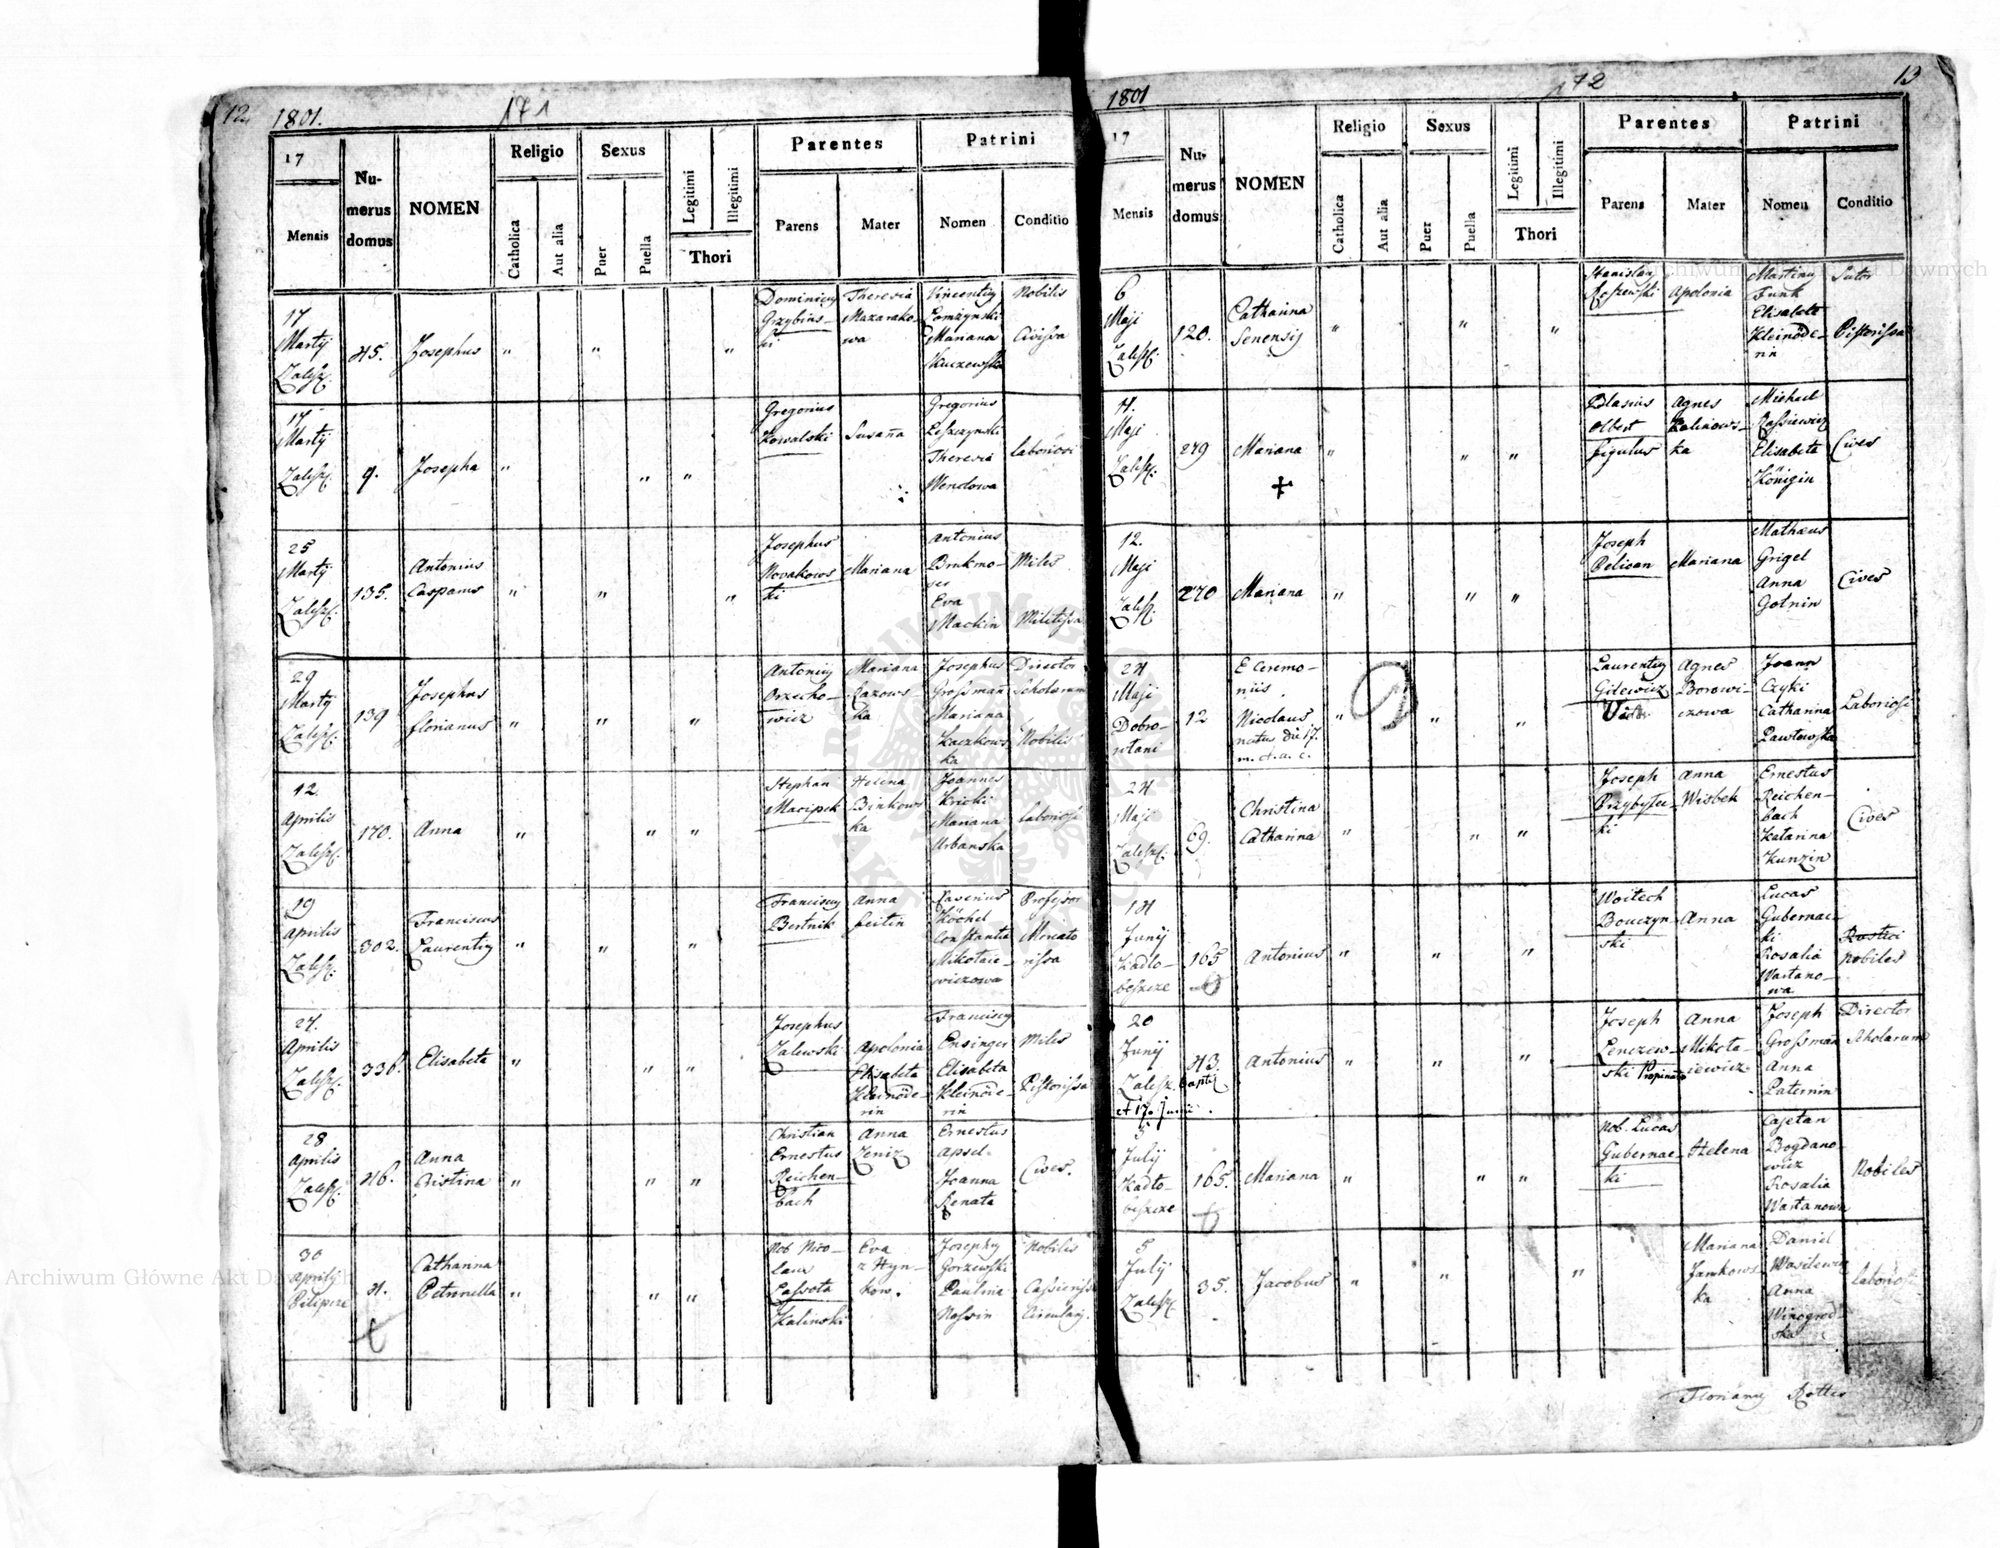 12. 1801. 171
17
Mensis
Numerus domus
NOMEN
Religio
Catholica
Aut alia
Sexus
Puer
Puella
Legitimi
Illegitimi
Thori
Parentes
Parens
Mater
Patrini
Nomen
Conditio
17 Martÿ Zalesz. 45. Josephus " " " Dominicus Grzybinski Theresia Mazarakowa Vincentius Mariana Nobilis Civissa
17 Martÿ Zalesz. 9. Josepha " " " Gregorius Kowalski Susana Gregorius Leszczynski Theresia Wendowa laboriosi
25 Martÿ Zalesz. 135. Antonius Casparus " " " Josephus Novakowski Mariana Antonius Eva Mackin Miles Militissa
29 Martÿ Zalesz. 139 Josephus florianus " " " Antonius Orzechowicz Mariana Josephus Grossman Mariana Kaczkowska Director Scholarum Nobilis
12. Aprilis Zalesz. 170. Anna " " " Stephan Macipek Helena Binkowska Joannes Kricki Mariana Urbanska laboriosi
19 Aprilis Zalesz. 302. Franciscus Laurentius " " " Franciscus Bertnik Anna feitin Xaverius Köchel Constantia Mikołaiewiczowa Professor Mercatorissa
24. Aprilis Zalesz. 336. Elisabeta " " " Josephus Zalewski Apolonia Elisabeta Kleinöderin Franciscus Ensinger Elisabeta Kleinöderin Miles Pistorissa
28 Aprilis Zalesz. 46. Anna Cristina " " " Christian Ernestus Reichenbach Anna Zeniz Ernestus Apsel Joanna Renata Cives.
30 Aprilis Pilipcze 4. Catharina Petronella " " " Nob Nicolaus Lassota Kalinski Eva z Hynkow. Josephus Gorzewski Paulina Nossin Nobilis Cassierissa Circulary.
1801 172 13
17
Mensis
Numerus domus
NOMEN
Religio
Catholica
Aut alia
Sexus
Puer
Puella
Legitimi
Illegitimi
Thori
Parentes
Parens
Mater
Patrini
Nomen
Conditio
6 Maji Zalesz. 120. Catharina Senensis " " " Stanislaus Apolonia Martinus Funk Elisabeta Kleinöderin Sutor Pistorissa
4. Maji Zalesz. 279 Mariana " " " Blasius Olbert figulus Agnes Kalinowska Michael Elisabeta Königin Cives
12. Maji Zalesz. 270 Mariana " " " Joseph Pelican Mariana Mathæus Grigel Anna Gotnin Cives
24 Maji Dobrowlani 12 E Ceremoniis. Nicolaus natus die 17. m. et a. c. " " " Laurentius Gilewicz Agnes Borowiczowa Joann Czyki Catharina Pawłowska Laboriosi
24 Maji Zalesz. 69. Christina Catharina " " " Joseph Przybylecki Anna Wisbek Ernestus Reichenbach Katarina Kunzin Cives
14 Junÿ Kadłobeszcze 165 Antonius " " " Woitech Bouczynski Anna Lucas Gubernacki Rosalia Wartanowa Rustici Nobiles
20 Junÿ Zalesz. et 17. Junii 43. Baptis Antonius " " " Joseph Lenczewski Propinator Anna Mikołaiewicz Joseph Grossman Anna Paternin Director Scholarum
3 Julÿ Kadłobeszcze 165. Mariana " " " Nob. Lucas Gubernacki Helena Cajetan Bogdanowicz Rosalia Wartanowa Nobiles
5 Julÿ Zalesz. 35. Jacobus " " " Mariana Jankowska Daniel Wasilewicz Anna Winogrodska laboriosi
Archiwum Główne Akt Dawnych
ARCHIWUM GŁÓWNE AKT DAWNYCH
Archiwum Główne Akt Dawnych